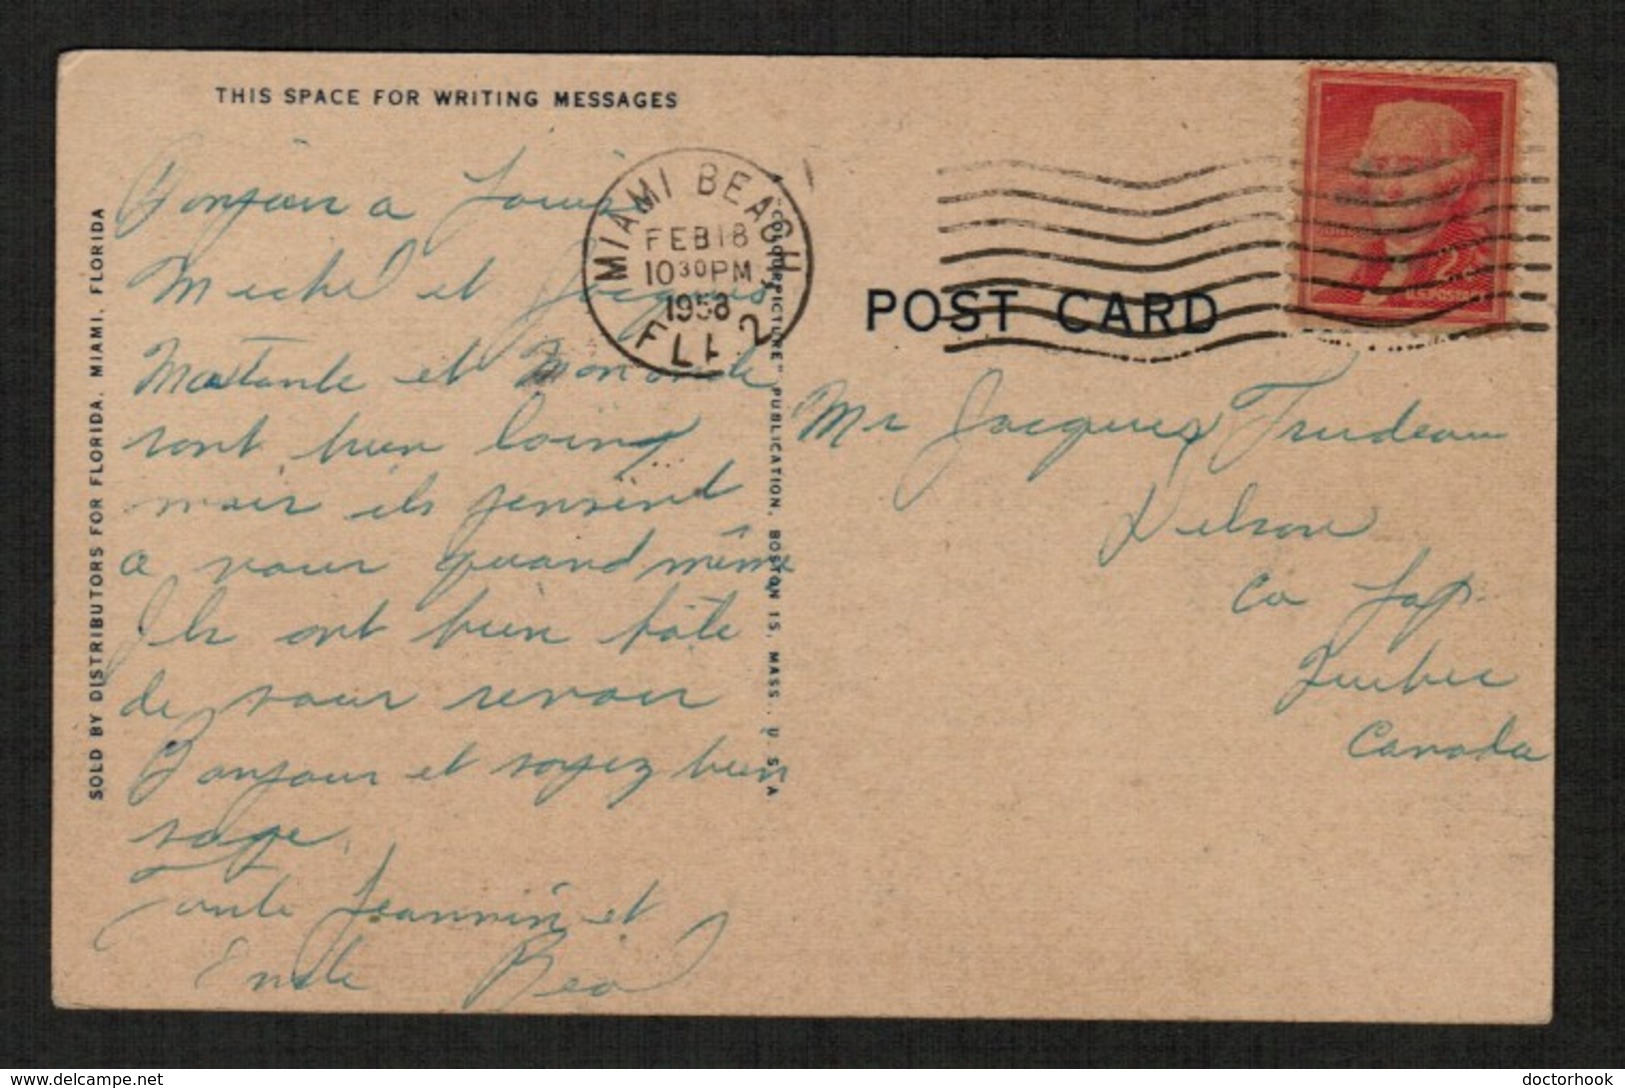 THIS SPACE FOR WRITING MESSAGES
Bonjour a Louise
Michel et Jacques
Matante et Mononcle
sont bien loing
mais ils pensent
a vous quand même
Ils ont bien hâte
de vous revoir
Bonjour et soyez bien
sage.
Tante Jeannine et
Oncle Bea
SOLD BY DISTRIBUTORS FOR FLORIDA, MIAMI, FLORIDA
"COLOURPICTURE" PUBLICATION, BOSTON 15, MASS., U.S.A
MIAMI BEACH
FEB 18
10 30 PM
1958
FLA. 2
POST CARD
2¢
U.S. POSTAGE
Mr Jacques Trudeau
Nelson
Co
Quebec
Canada
delcampe.net
doctorhook